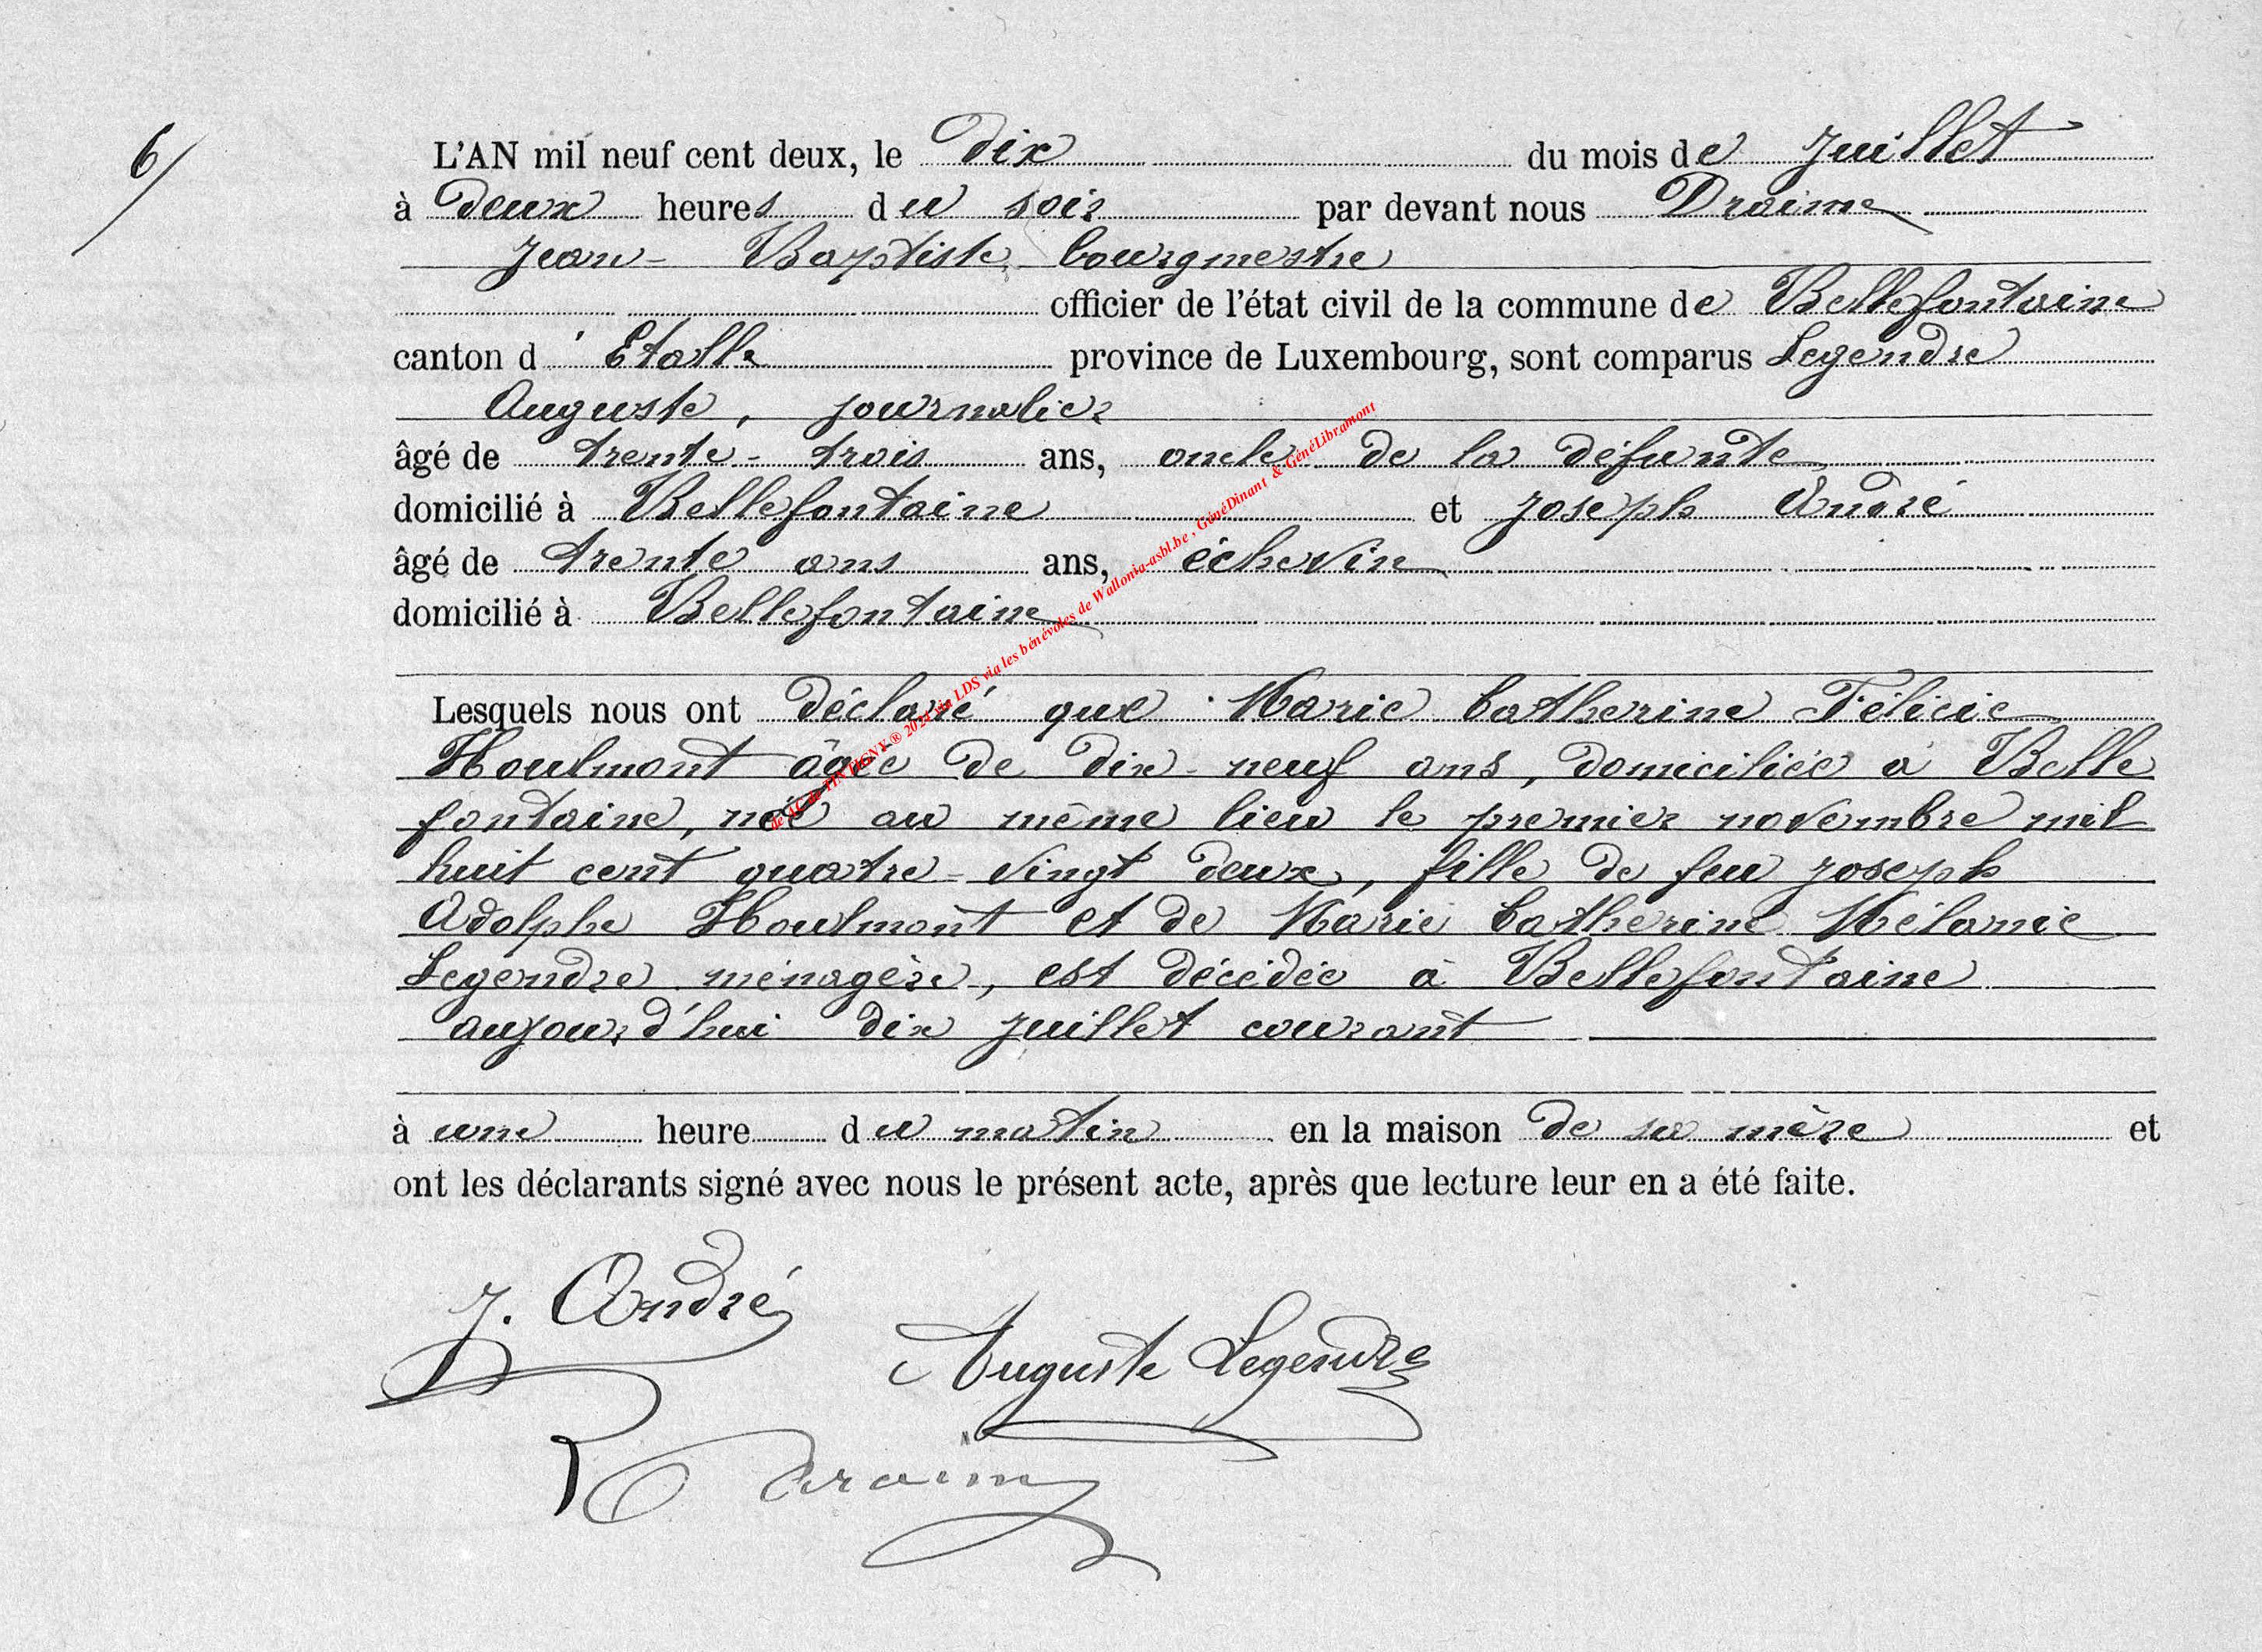 6/
L'AN mil neuf cent deux, le dix du mois de Juillet
à deux heures du soir par devant nous Draime
Jean-Baptiste, bourgmestre
officier de l'état civil de la commune de Bellefontaine
canton d'Etalle province de Luxembourg, sont comparus Legendre
Auguste, journalier
âgé de trente-trois ans, oncle de la défunte
domicilié à Bellefontaine et Joseph André
âgé de trente ans ans, échevin
domicilié à Bellefontaine
Lesquels nous ont déclaré que Marie Catherine Félicie
Houlmont âgée de dix-neuf ans, domiciliée à Belle
fontaine, née au même lieu le premier novembre mil
huit cent quatre-vingt deux, fille de feu Joseph
Adolphe Houlmont et de Marie Catherine Mélanie
Legendre ménagère, est décédée à Bellefontaine
aujourd'hui dix juillet courant
à une heure du matin en la maison de sa mère et
ont les déclarants signé avec nous le présent acte, après que lecture leur en a été faite.
J. André
Auguste Legendre
Draime
de AC de TINTIGNY ® 2024 via LDS via les bénévoles de Wallonia-asbl.be, GénéDinant & GénéLibramont